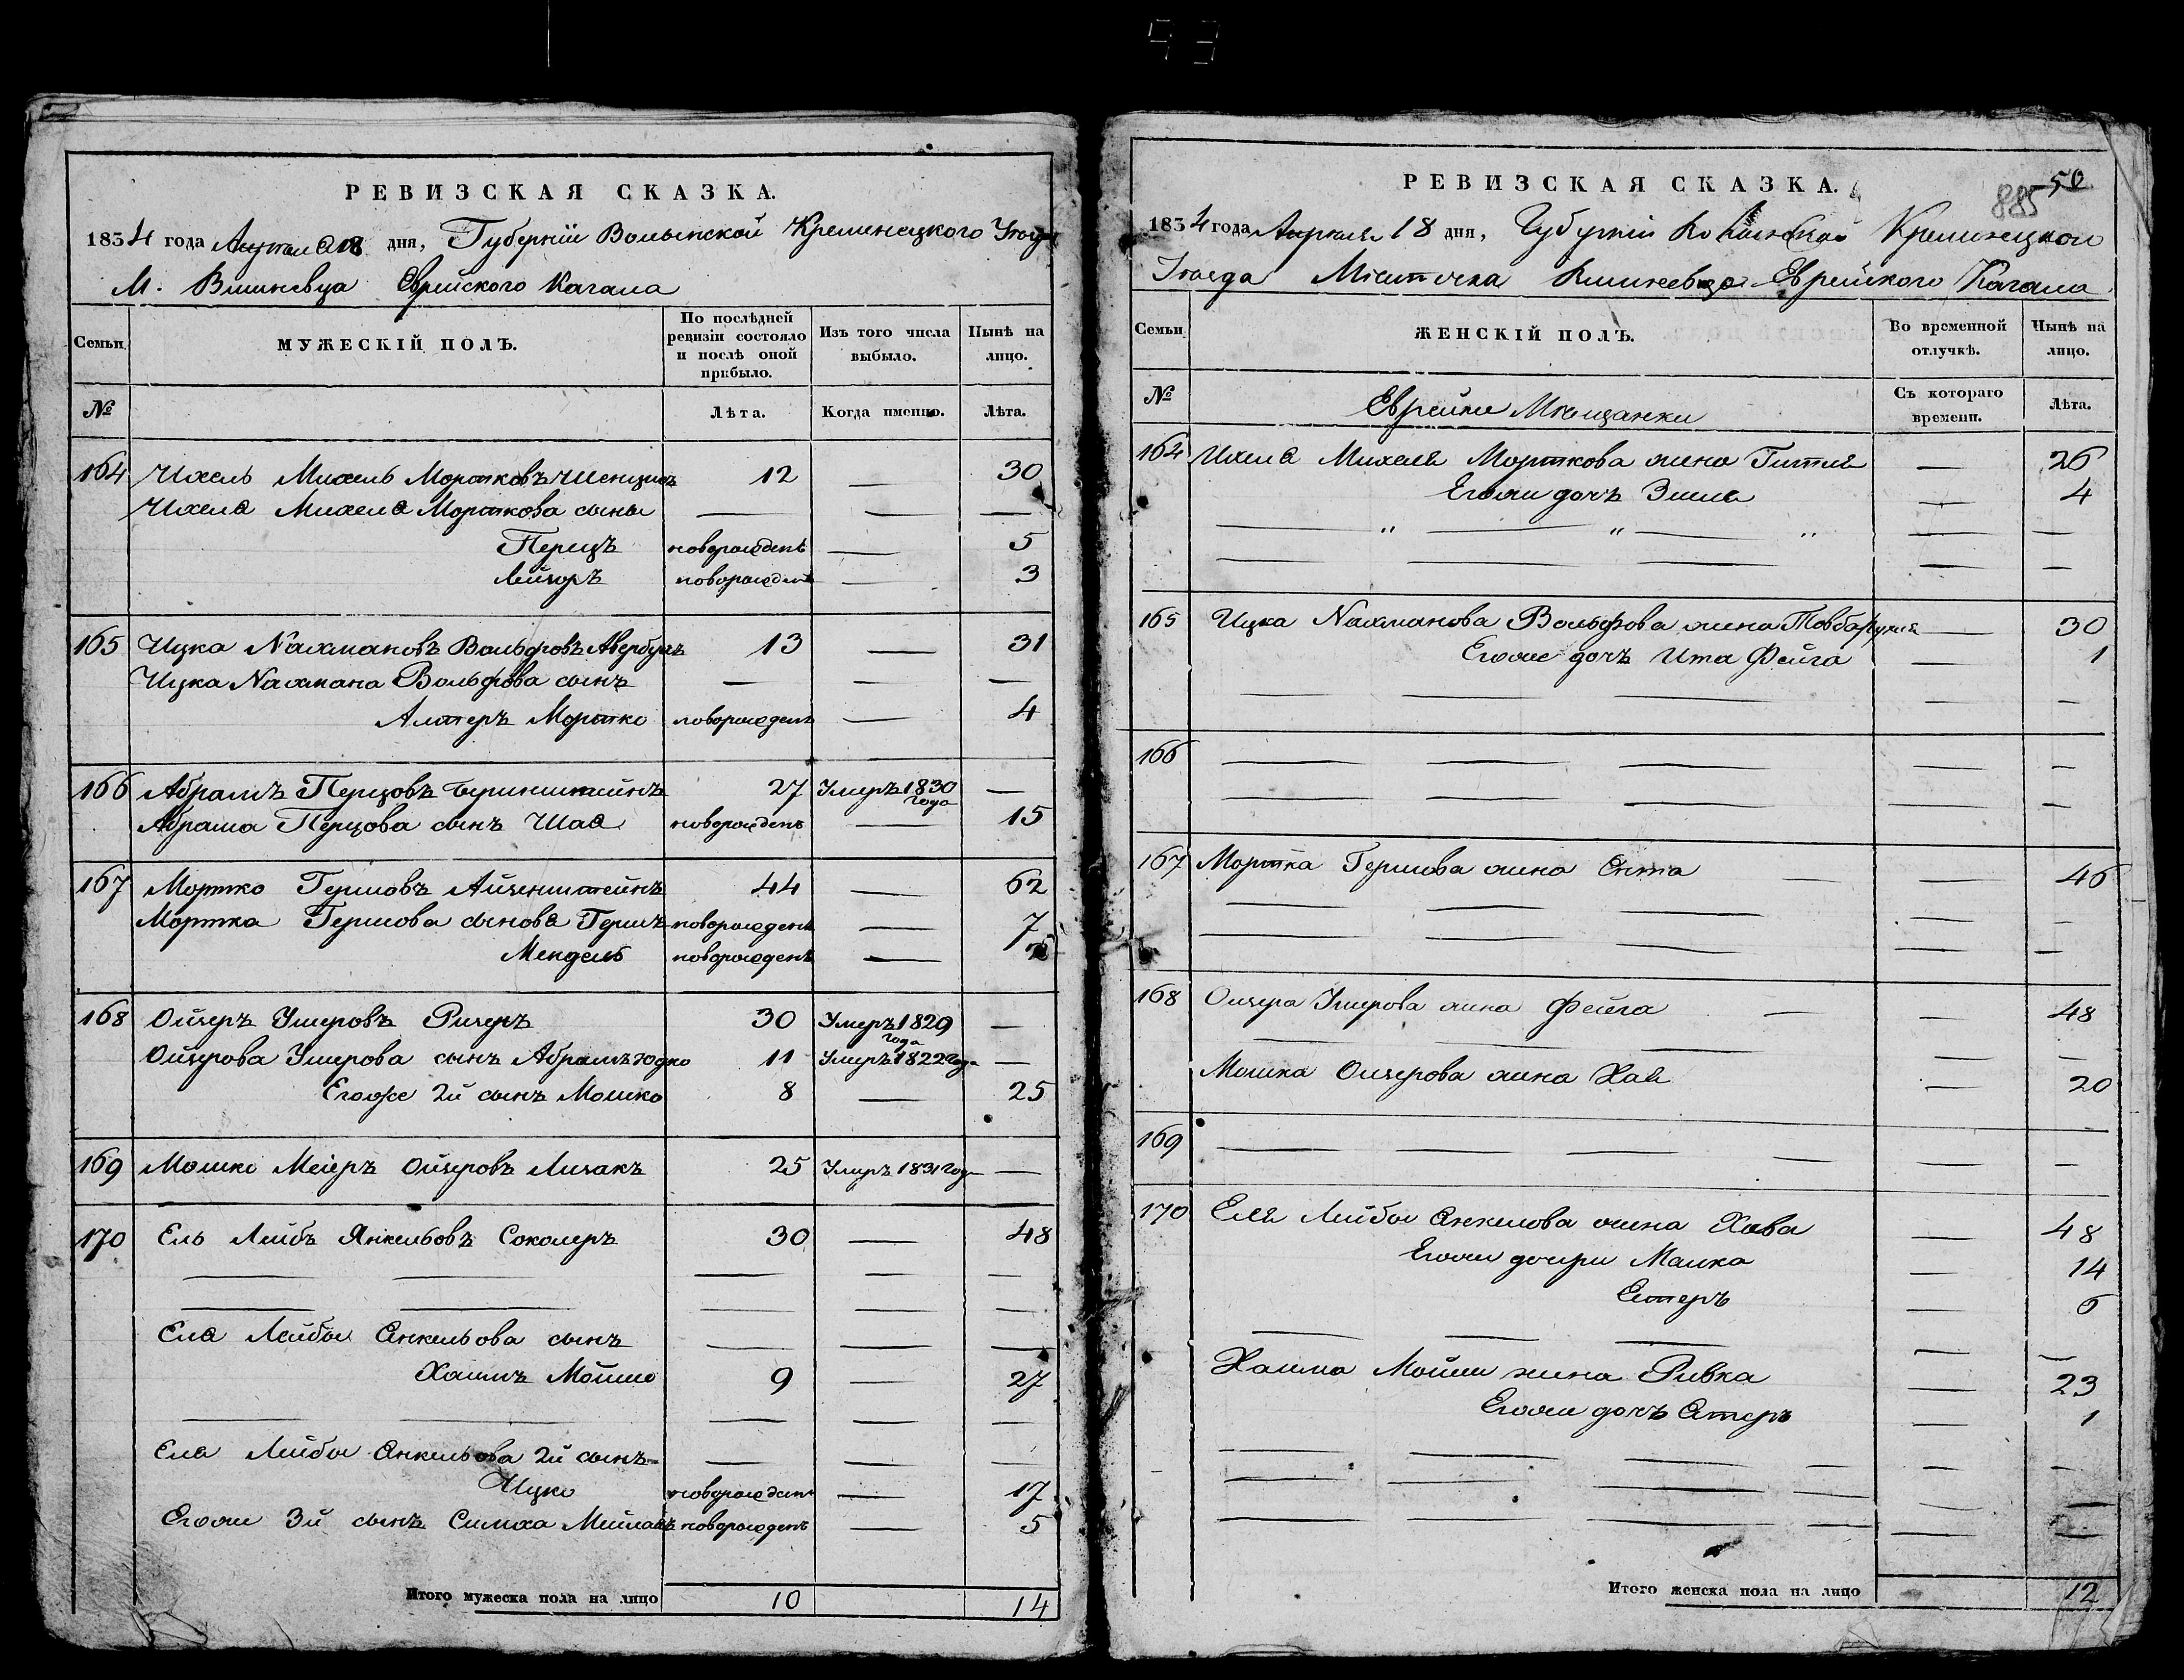 РЕВИЗСКАЯ СКАЗКА.
1834 года Апреля 18 дня, Губернiи Волынской Кременецкого Уезда
М. Вишневца Еврейского Кагала
Семьи
МУЖЕСКIЙ ПОЛЪ.
По послѣдней ревизiи состояло и послѣ оной прибыло.
Изъ того числа выбыло.
Нынѣ на лицо.
№
Лѣта.
Когда именно.
Лѣта.
164 Ихель Михель Мортковъ 12 — 30
Ихеля Михеля Морткова сыны — — —
Перецъ новорожденъ — 5
Лейзоръ новорожденъ — 3
165 Ицка Нахмановъ Вольфовъ Авербухъ 13 — 31
Ицка Нахмана Вольфова сынъ — — —
Алтеръ Мортко новорожденъ — 4
166 Абрамъ Перцовъ Беринштейнъ 27 Умеръ 1830 года —
Абрама Перцова сынъ Шая новорожденъ — 15
167 Мортко Гершовъ Айзенштейнъ 44 — 62
Мортка Гершова сыновя Гершъ новорожденъ — 7
Мендель новорожденъ —
168 Ойзеръ Умеровъ 30 Умеръ 1829 года —
Ойзерова Умерова сынъ Абрамъ Юдко 11 Умеръ 1822 года —
Егоже 2й сынъ Мошко 8 — 25
169 Мошко Меiеръ Ойзеровъ 25 Умеръ 1831 года —
170 Ель Лейбъ Янкельовъ Соколеръ 30 — 48
Еля Лейбы Янкельова сынъ — — —
Хаимъ Мойше 9 — 27
Еля Лейбы Янкельова 2й сынъ — — —
Ицко новорожденъ — 17
Егоже 3й сынъ Симха новорожденъ — 5
Итого мужеска пола на лицо 10 14
РЕВИЗСКАЯ СКАЗКА.
885 50
1834 года Апреля 18 дня, Губернiи Волынской Кременецкого
Уезда Местечка Вишневца Еврейского Кагала
Семьи
ЖЕНСКIЙ ПОЛЪ.
Во временной отлучкѣ.
Нынѣ на лицо.
№
Еврейки Мещанки
Съ котораго времени.
Лѣта.
164 Ихеля Михеля Морткова жена Гитля — 26
Егоже дочъ — 4
165 Ицка Нахманова Вольфова жена — 30
Егоже дочъ Ита Фейга — 1
166 — — — — —
167 Мортка Гершова жена Ента — 46
168 Ойзера Умерова жена Фейга — 48
Мошка Ойзерова жена Хая — 20
169 — — — — —
170 Еля Лейбы Янкелова жена Хава — 48
Егоже дочери Малка — 14
Естеръ — 6
Хаима Мойши жена Ривка — 23
Егоже дочъ Естеръ — 1
Итого женска пола на лицо 12